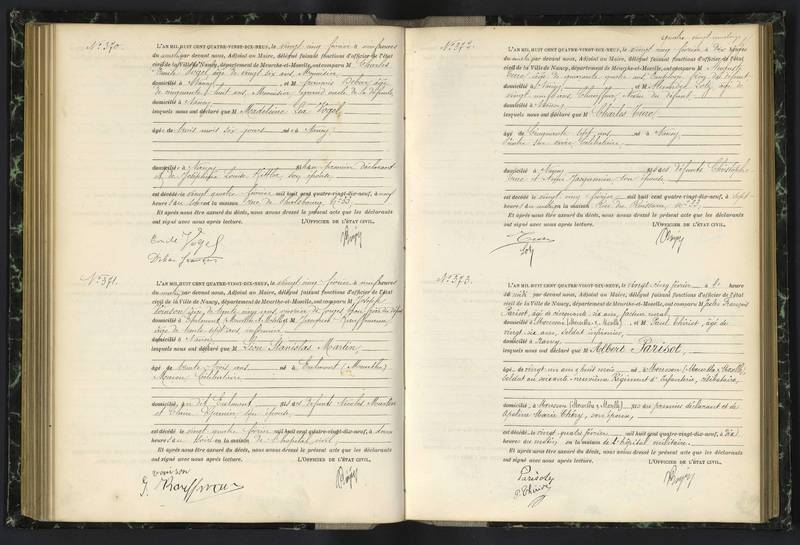 N° 370.
L'AN MIL HUIT CENT QUATRE-VINGT-DIX-NEUF, le vingt cinq février à onze heures
du matin par devant nous, Adjoint au Maire, délégué faisant fonctions d'officier de l'état
civil de la Ville de Nancy, département de Meurthe-et-Moselle, ont comparu M Charles
Emile Vogel âgé de vingt six ans,
domicilié à Nancy et M François Dehan âgé
de cinquante huit ans, Menuisier, grand oncle de la défunte,
domicilié à Nancy
lesquels nous ont déclaré que M Madeleine Léa Vogel
âgée de trois mois six jours née à Nancy
domiciliée à Nancy fille du premier déclarant
et de Joséphine Louise Kittler, son épouse,
est décédée le vingt quatre février mil huit cent quatre-vingt-dix-neuf, à neuf
heures du soir en la maison rue de Phalsbourg, N° 33,
Et après nous être assuré du décès, nous avons dressé le présent acte que les déclarants
ont signé avec nous après lecture. L'OFFICIER DE L'ÉTAT CIVIL,
Emile Vogel
Dehan François
N° 371.
L'AN MIL HUIT CENT QUATRE-VINGT-DIX-NEUF, le vingt cinq février à onze heures
du matin par devant nous, Adjoint au Maire, délégué faisant fonctions d'officier de l'état
civil de la Ville de Nancy, département de Meurthe-et-Moselle, ont comparu M Joseph
âgé de trente cinq ans
domicilié à Eulmont (Meurthe & Moselle) et M
âgé de trente sept ans infirmier
domicilié à Nancy
lesquels nous ont déclaré que M Léon Stanislas Martin,
âgé de trente trois ans né à Eulmont (Meurthe)
Célibataire
domicilié, au dit Eulmont fils des défunts Nicolas Martin
et son épouse,
est décédé le vingt quatre février mil huit cent quatre-vingt-dix-neuf, à deux
heures du soir en la maison de l'hôpital civil,
Et après nous être assuré du décès, nous avons dressé le présent acte que les déclarants
ont signé avec nous après lecture. L'OFFICIER DE L'ÉTAT CIVIL,
N° 372.
L'AN MIL HUIT CENT QUATRE-VINGT-DIX-NEUF, le vingt cinq février à dix heures
du matin par devant nous, Adjoint au Maire, délégué faisant fonctions d'officier de l'état
civil de la Ville de Nancy, département de Meurthe-et-Moselle, ont comparu M
âgé de quarante quatre ans Employé frère du défunt
domicilié à Nancy et M Loly, âgé de
vingt ans Chauffeur, Neveu du défunt
domicilié à
lesquels nous ont déclaré que M Charles
âgé de Cinquante sept ans né à Nancy
Célibataire,
domicilié à Nancy fils des défunts Christophe
et Anne Jacquemin, son épouse
est décédé le vingt cinq février mil huit cent quatre-vingt-dix-neuf, à sept
heures du matin en la maison Rue du Ruisseau, N° 33,
Et après nous être assuré du décès, nous avons dressé le présent acte que les déclarants
ont signé avec nous après lecture. L'OFFICIER DE L'ÉTAT CIVIL,
Loly
N° 373.
L'AN MIL HUIT CENT QUATRE-VINGT-DIX-NEUF, le vingt-cinq février à heure
par devant nous, Adjoint au Maire, délégué faisant fonctions d'officier de l'état
civil de la Ville de Nancy, département de Meurthe-et-Moselle, ont comparu M Jules François
Parisot, âgé de cinquante-six ans, facteur rural,
domicilié à (Meurthe & Moselle) et M Paul Thiriot, âgé de
vingt-six ans, soldat infirmier,
domicilié à Nancy,
lesquels nous ont déclaré que M Albert Parisot,
âgé de vingt un ans, huit mois né à (Meurthe & Moselle),
Soldat au soixante-neuvième Régiment d'Infanterie, célibataire,
domicilié à (Meurthe & Moselle) fils du premier déclarant et de
Marie Théry, son épouse,
est décédé le vingt quatre février mil huit cent quatre-vingt-dix-neuf, à dix
heures du matin, en la maison de l'hôpital militaire.
Et après nous être assuré du décès, nous avons dressé le présent acte que les déclarants
ont signé avec nous après lecture. L'OFFICIER DE L'ÉTAT CIVIL,
Parisot
P. Thiriot